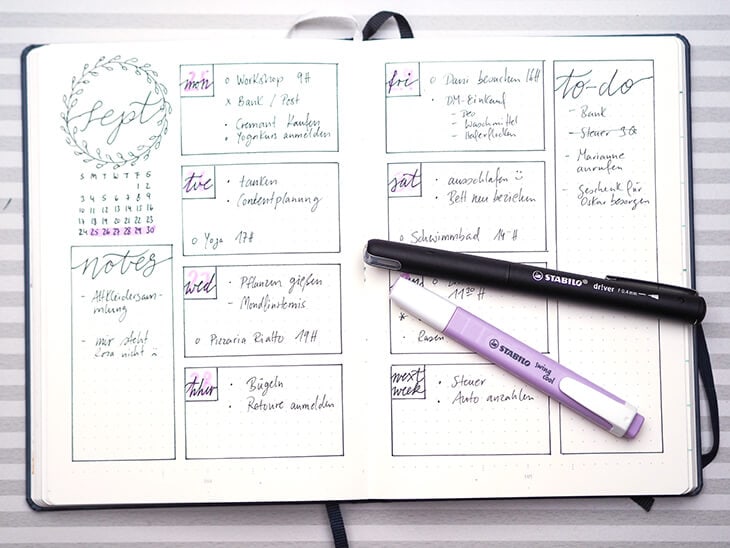 sept
S M T W T F S
1 2
3 4 5 6 7 8 9
10 11 12 13 14 15 16
17 18 19 20 21 22 23
24 25 26 27 28 29 30
notes
- Altkleidersam-
mlung
- mir steht
rosa nicht
mon
o Workshop 9h
x Bank / Post
• Cremant kaufen
• Yogakurs anmelden
tue
• tanken
• Contentplanung
o Yoga 17h
wed
• Pflanzen gießen
- Mondfinsternis
o Pizzaria Rialto 19h
thur
• Bügeln
• Retoure anmelden
fri
o Dani besuchen 16h
• DM-Einkauf
- Deo
- Waschmittel
- Haferflocken
sat
• ausschlafen
• Bett neu beziehen
o Schwimmbad 14-h
11 30 h
*
Rasen
next
week
• Steuer
• Auto anzahlen
to-do
- Bank
- Steuer
- Marianne
anrufen
- Geschenk für
Oskar besorgen
STABILO dr!ver
STABILO swing
cool